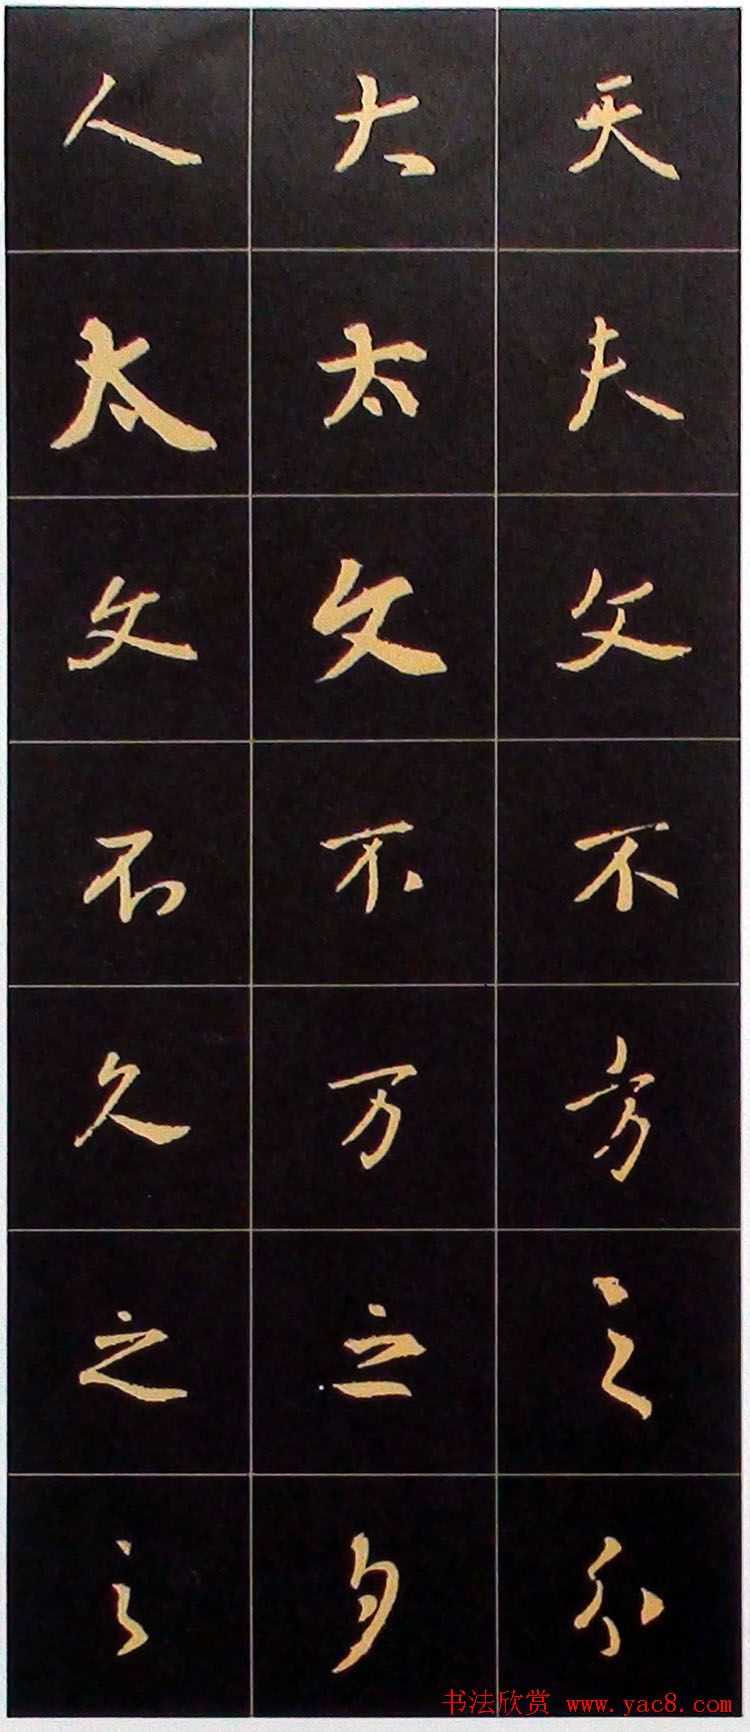 人 大 天
太 太 夫
文 文 父
不 不 不
久 万 方
之 之 之
之 夕
书法欣赏 www.yac8.com